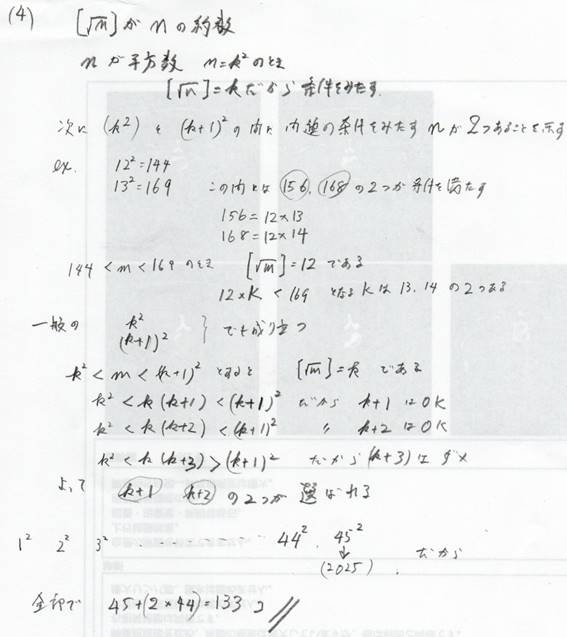 (4) [√n] が n の約数
n が平方数 n=k² のとき
[√n]=k だから 条件をみたす
次に (k²) と (k+1)² の間に 内題の条件をみたす n が 2つあることを示す
ex. 12²=144
13²=169 この間には 156, 168 の2つが条件を満たす
156=12×13
168=12×14
144<n<169 のとき [√n]=12 である
12×K<169 となる K は 13, 14 の2つある
一般の k² (k+1)² } でも成り立つ
k²<n<(k+1)² とすると [√n]=k である
k²<k(k+1)<(k+1)² だから k+1 はOK
k²<k(k+2)<(k+1)² 〃 k+2 はOK
k²<k(k+3)>(k+1)² だから (k+3) はダメ
よって k+1 k+2 の2つが選ばれる
1² 2² 3² ………… 44². 45² だから
↓
(2025)
全部で 45+(2×44)=133コ